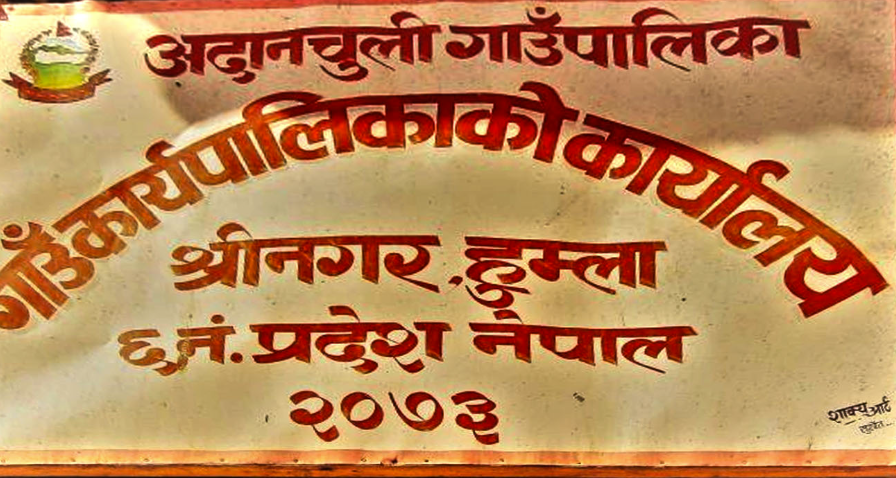 अदानचुली गाउँपालिका
गाउँकार्यपालिकाको कार्यालय
श्रीनगर,हुम्ला
६नं.प्रदेश नेपाल
२०७३
शाक्य आर्ट